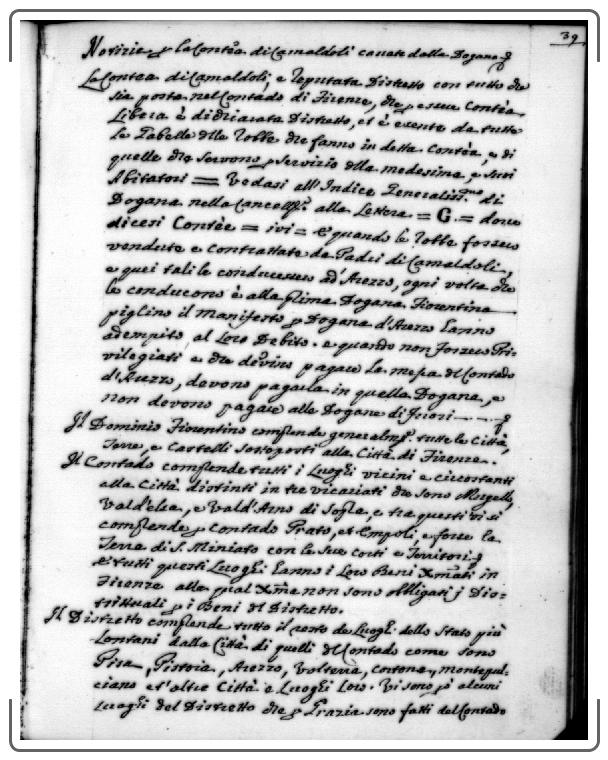 39
Notizie p la Contea di Camaldoli cavate dalla Dogana
La Contea di Camaldoli, e reputata Distretto con tutto che
sia posta nel Contado di Firenze, che p essere Contèa
Libera è dichiarata Distretto, et è esente da tutte
Le Gabelle delle robbe che fanno in detta Contèa, e di
quelle che servono p servizio della medesima, e suoi
Abitatori = Vedasi all'Indice Generaliss.mo di
Dogana nella Cancell. alla Lettera = G. = dove
dicesi Contèe = ivi = E quando le robbe fossero
vendute e contrattate da Padri di Camaldoli,
e quei tali le conducessero ad Arezzo, ogni volta che
le conducono è alla prima Dogana Fiorentina
piglino il Manifesto p Dogana d'Arezzo hanno
adempito al loro Debito. e quando non fossero Pri-
vilegiati e che devino pagare la mesa del Contado
d'Arezzo, devono pagarla in quella Dogana, e
non devono pagare alle Dogane di fuori
Il Dominio Fiorentino comprende generalm. tutte le Città,
Terre, e Castelli sottoposti alla Città di Firenze.
Il Contado comprende tutti i Luoghi vicini e circostanti
alla Città distinti in tre vicariati che sono Mugello,
Vald'elsa, e Vald'Arno di Sopra, e tra questi vi si
comprende p Contado Prato, et Empoli, e forse la
Terra di S. Miniato con le sue Corti e Territori
E tutti questi Luoghi hanno i loro Beni Xmati in
Firenze alla qual Xma non sono obbligati i Dis-
trittuali p i Beni del Distretto.
Il Distretto comprende tutto il resto de Luoghi dello Stato più
Lontani dalla Città di quelli del Contado come sono
Pisa, Pistoia, Arezzo, Volterra, Cortona, Montepul-
ciano et altre Città e Luoghi loro. Vi sono p ò alcuni
Luoghi del Distretto che p Grazia sono fatti del Contado